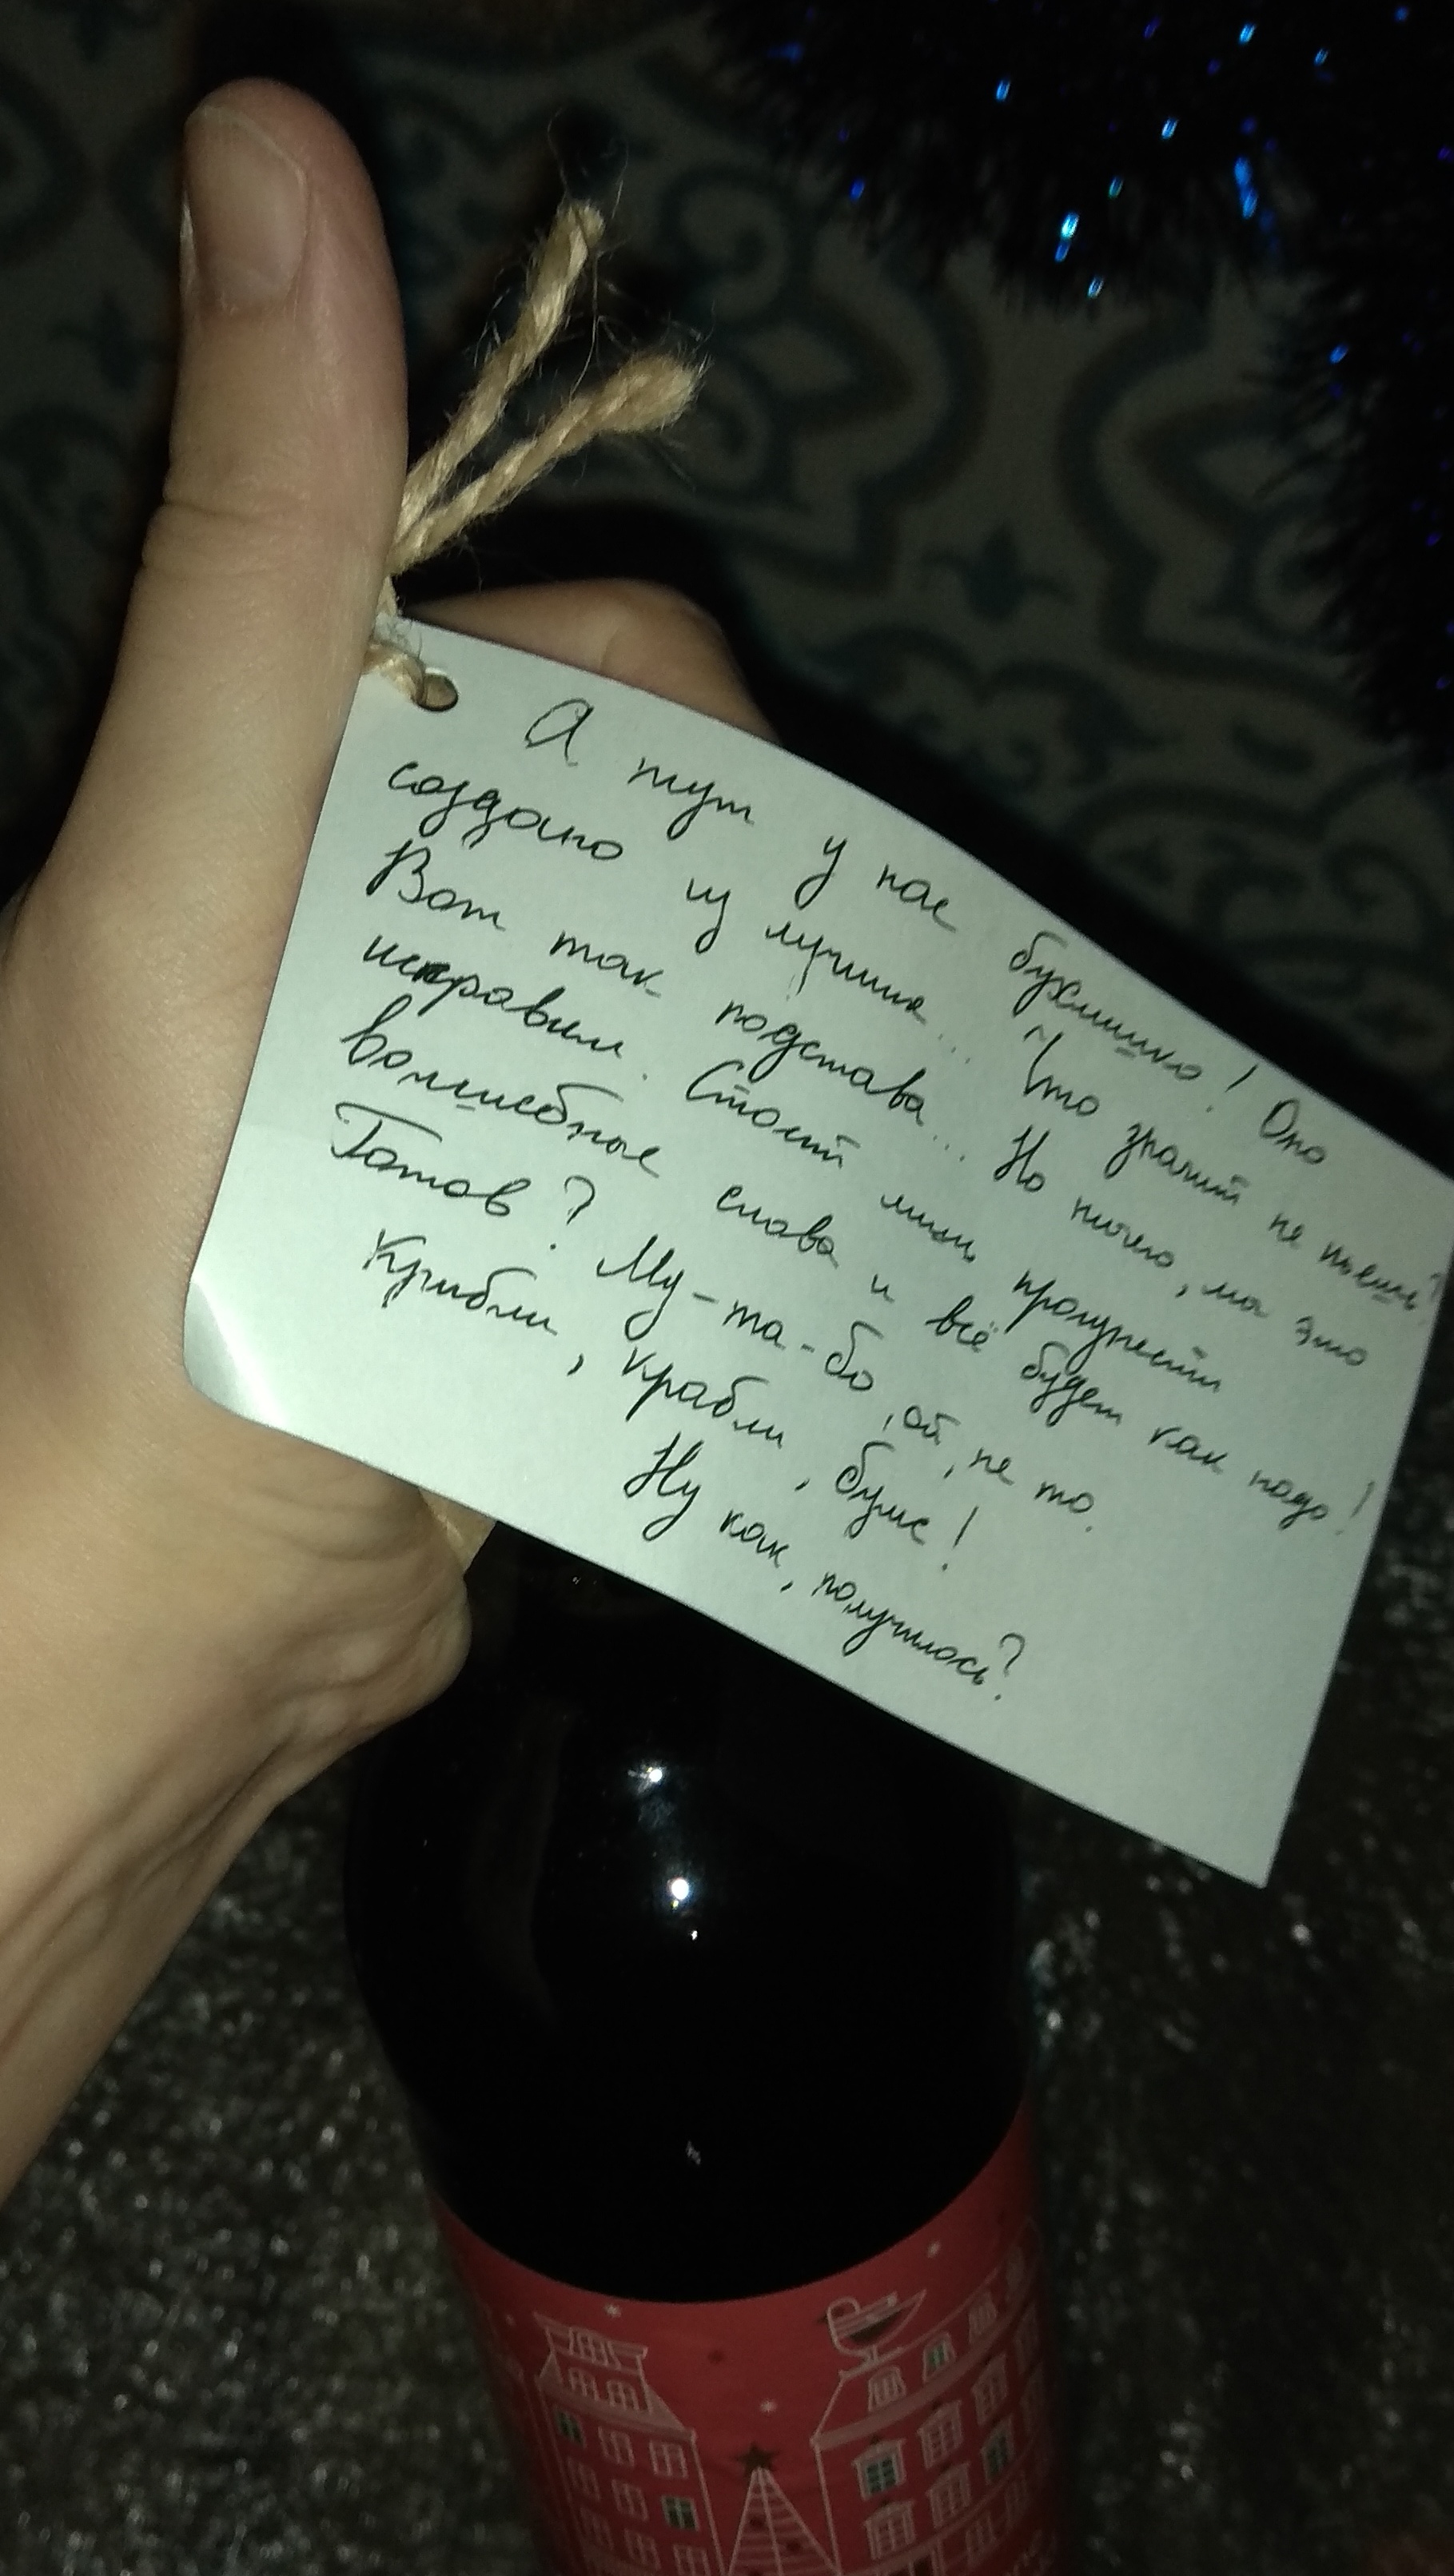 А тут у нас бухлишко! Оно
создано из лучших... Что значит не пьешь?
Вот так подстава... Но ничего, мы это
исправим. Стоит лишь произнести
волшебные слова и всё будет как надо!
Готов? Му-та-бо, ой, не то.
Крибли, крабли, бумс!
Ну как, получилось?